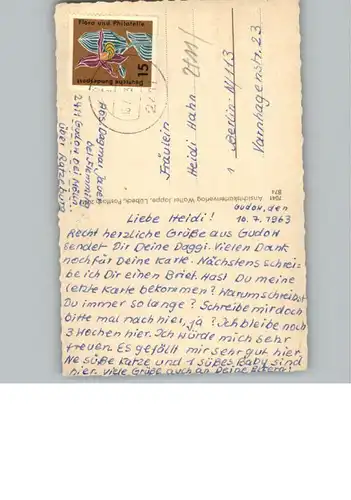 Flora und Philatelie
15
Deutsche Bundespost
Fräulein
Heidi Hahn
1 Berlin N/113
Varnhagenstr. 23
über Ratzeburg
Ansichtskartenverlag Walter Joppe, Lübeck, Postfach
Gudow, den
10.7.1963
Liebe Heidi!
Recht herzliche Grüße aus Gudow
sendet Dir Deine Daggi. Vielen Dank
noch für Deine Karte. Nächstens schrei-
be ich Dir einen Brief. Hast Du meine
letzte Karte bekommen? Warum schreibst
Du immer so lange? Schreibe mir doch
bitte mal nach hier, ja? Ich bleibe noch
3 Wochen hier. Ich würde mich sehr
freuen. Es gefällt mir sehr gut hier.
Ne süße Katze und 1 süßes Baby sind
hier. Viele Grüße auch an Deine Eltern!